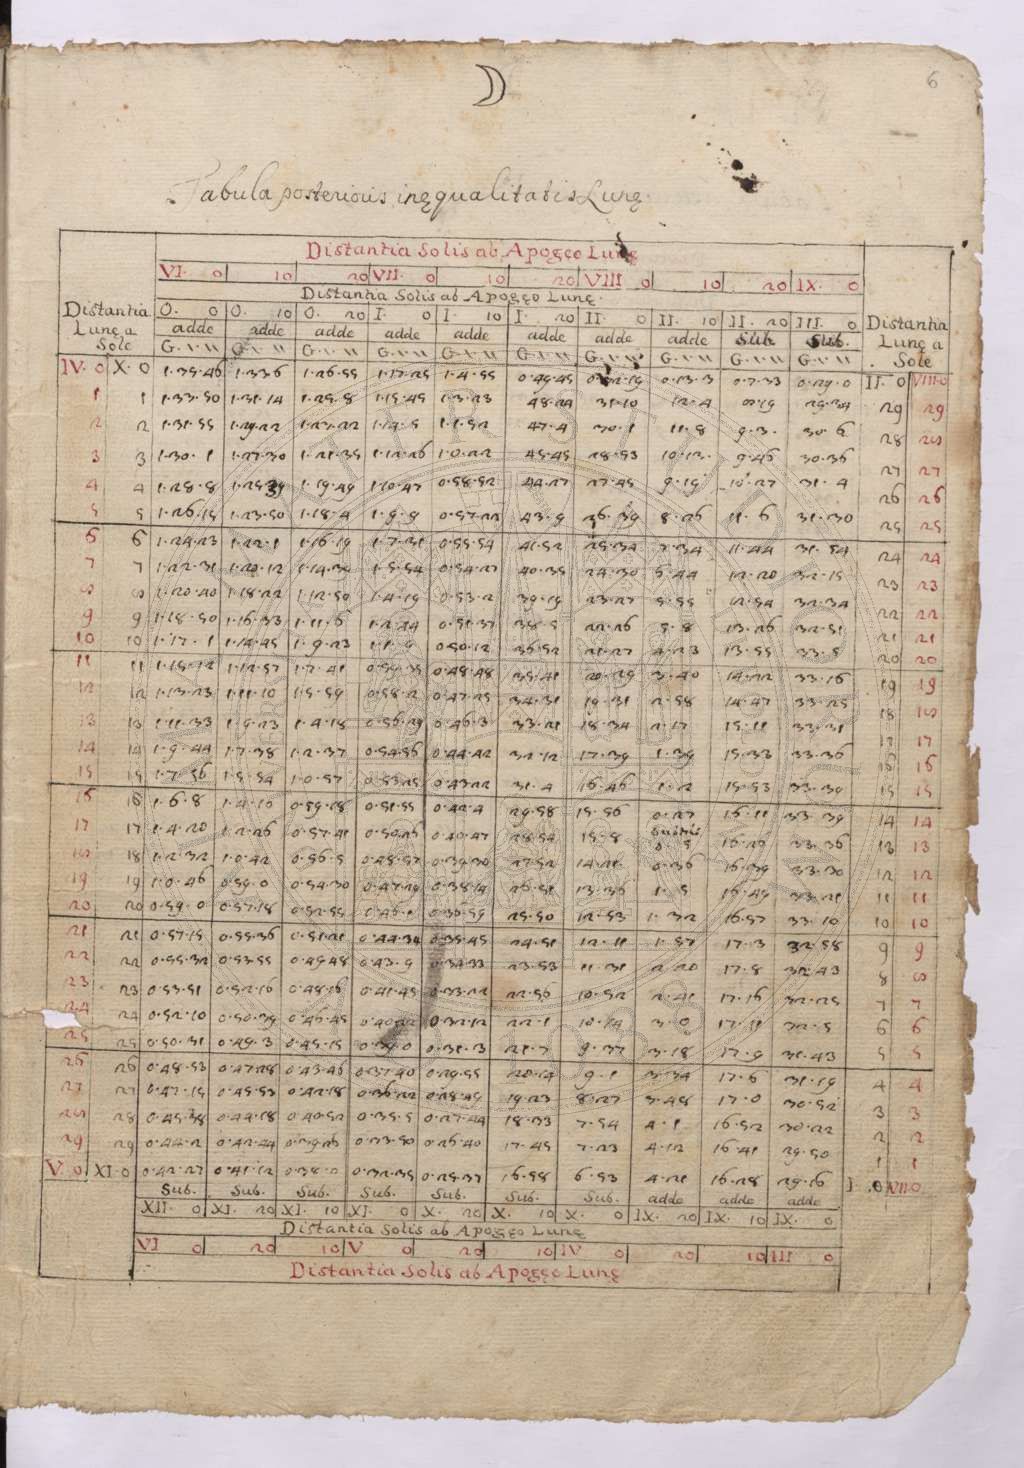 6
Tabula posterioris inęqualitatis Lunę.
Distantia Solis ab Apogęo Lunę
VI. 0 10 20 VII. 0 10 20 VIII 0 10 20 IX. 0
Distantia Solis ab Apogęo Lunę.
Distantia Lunę a Sole O. 0 O. 10 O. 20 I. 0 I. 10 I. 20 II. 0 II. 10 II. 20 III. 0 Distantia Lunę a Sole
adde adde adde adde adde adde adde adde Sub. Sub.
G. ı. ıı G. ı. ıı G. ı. ıı G. ı. ıı G. ı. ıı G. ı. ıı G. ı. ıı G. ı. ıı G. ı. ıı G. ı. ıı
IV. 0 X. 0 1.35.46 1.33.6 1.26.55 1.17.25 1.4.55 0.49.45 0.13.3 0.7.33 0.29.0 II. 0 VIII. 0
1 1 1.33.50 1.31.14 1.25.8 1.15.45 1.3.23 48.24 31.10 12.4 29.34 29 29
2 2 1.31.55 1.29.22 1.23.22 1.14.5 1.1.52 47.4 30.1 11.8 9.3. 30.6 28 28
3 3 1.30.1 1.27.30 1.21.35 1.12.26 1.0.22 45.45 28.53 10.13. 9.46 30.36 27 27
4 4 1.28.8 1.19.49 1.10.47 0.58.52 44.27 27.45 9.19 10.27 31.4 26 26
5 5 1.26.15 1.23.50 1.18.4 1.9.9 0.57.22 43.9 26.39 8.26 11.6 31.30 25 25
6 6 1.24.23 1.22.1 1.16.19 1.7.31 0.55.54 41.52 25.34 7.34 11.44 31.54 24 24
7 7 1.22.31 1.20.12 1.14.34 1.5.54 0.54.27 40.35 24.30 6.44 12.20 32.15 23 23
8 8 1.20.40 1.18.22 1.12.50 1.4.19 0.53.2 39.19 23.27 5.55 12.54 32.34 22 22
9 9 1.18.50 1.16.33 1.11.6 1.2.44 0.51.37 38.5 22.26 5.8 13.26 32.51 21 21
10 10 1.17.1 1.14.45 1.9.23 1.1.9 0.50.12 36.52 21.27 4.23 13.55 33.5 20 20
11 11 1.15.12 1.12.57 1.7.41 0.59.35 0.48.48 35.41 20.29 3.40 14.22 33.16 19 19
12 12 1.13.23 1.11.10 1.5.59 0.58.2 0.47.25 34.31 19.31 2.58 14.47 33.25 18 18
13 13 1.11.33 1.9.23 1.4.18 0.56.29 0.46.3 33.21 18.34 2.17 15.11 33.31 17 17
14 14 1.9.44 1.7.38 1.2.37 0.54.56 0.44.42 32.12 17.39 1.39 15.33 33.36 16 16
15 15 1.7.56 1.5.54 1.0.57 0.53.25 0.43.22 31.4 16.46 1.2 15.53 33.39 15 15
16 16 1.6.8 1.4.10 0.59.18 0.51.55 0.42.4 29.58 15.56 0.27 16.11 33.39 14 14
17 17 1.4.20 1.2.26 0.57.41 0.50.26 0.40.47 28.54 15.8 0.5 16.26 33.36 13 13
18 18 1.2.32 1.0.42 0.56.5 0.48.57 0.39.30 27.52 14.21 0.36 16.39 33.30 12 12
19 19 1.0.46 0.59.0 0.54.30 0.47.29 0.38.14 26.51 13.36 1.5 16.49 33.21 11 11
20 20 0.59.0 0.57.18 0.52.55 0.46.1 0.36.59 25.50 12.53 1.32 16.57 33.10 10 10
21 21 0.57.15 0.55.36 0.51.21 0.44.34 0.35.45 24.51 12.11 1.57 17.3 32.58 9 9
22 22 0.55.32 0.53.55 0.49.48 0.43.9 0.34.33 23.53 11.31 2.20 17.8 32.43 8 8
23 23 0.53.51 0.52.16 0.48.16 0.41.45 0.33.22 22.56 10.52 2.41 17.10 32.25 7 7
24 24 0.52.10 0.50.39 0.46.45 0.40.22 0.32.12 22.1 10.14 3.0 17.11 32.5 6 6
25 25 0.50.31 0.49.3 0.45.15 0.39.0 0.31.3 21.7 9.37 3.18 17.9 31.43 5 5
26 26 0.48.53 0.47.28 0.43.46 0.37.40 0.29.55 20.14 9.1 3.34 17.6 31.19 4 4
27 27 0.47.15 0.45.53 0.42.18 0.36.22 0.28.49 19.23 8.27 3.48 17.0 30.52 3 3
28 28 0.45.38 0.44.18 0.40.52 0.35.5 0.27.44 18.33 7.54 4.1 16.52 30.22 2 2
29 29 0.44.2 0.42.44 0.39.25 0.33.50 0.26.40 17.45 7.23 4.12 16.41 29.50 1 1
V. 0 XI. 0 0.42.27 0.41.12 0.38.0 0.32.35 0.25.37 16.58 6.53 4.21 16.28 29.16 I. 0 VII. 0
Sub. Sub. Sub. Sub. Sub. Sub. Sub. adde adde adde
XII. 0 XI. 20 XI. 10 XI. 0 X. 20 X. 10 X. 0 IX. 20 IX. 10 IX. 0
Distantia Solis ab Apogęo Lunę
VI 0 20 10 V 0 20 10 IV 0 20 10 III 0
Distantia Solis ab Apogęo Lunę